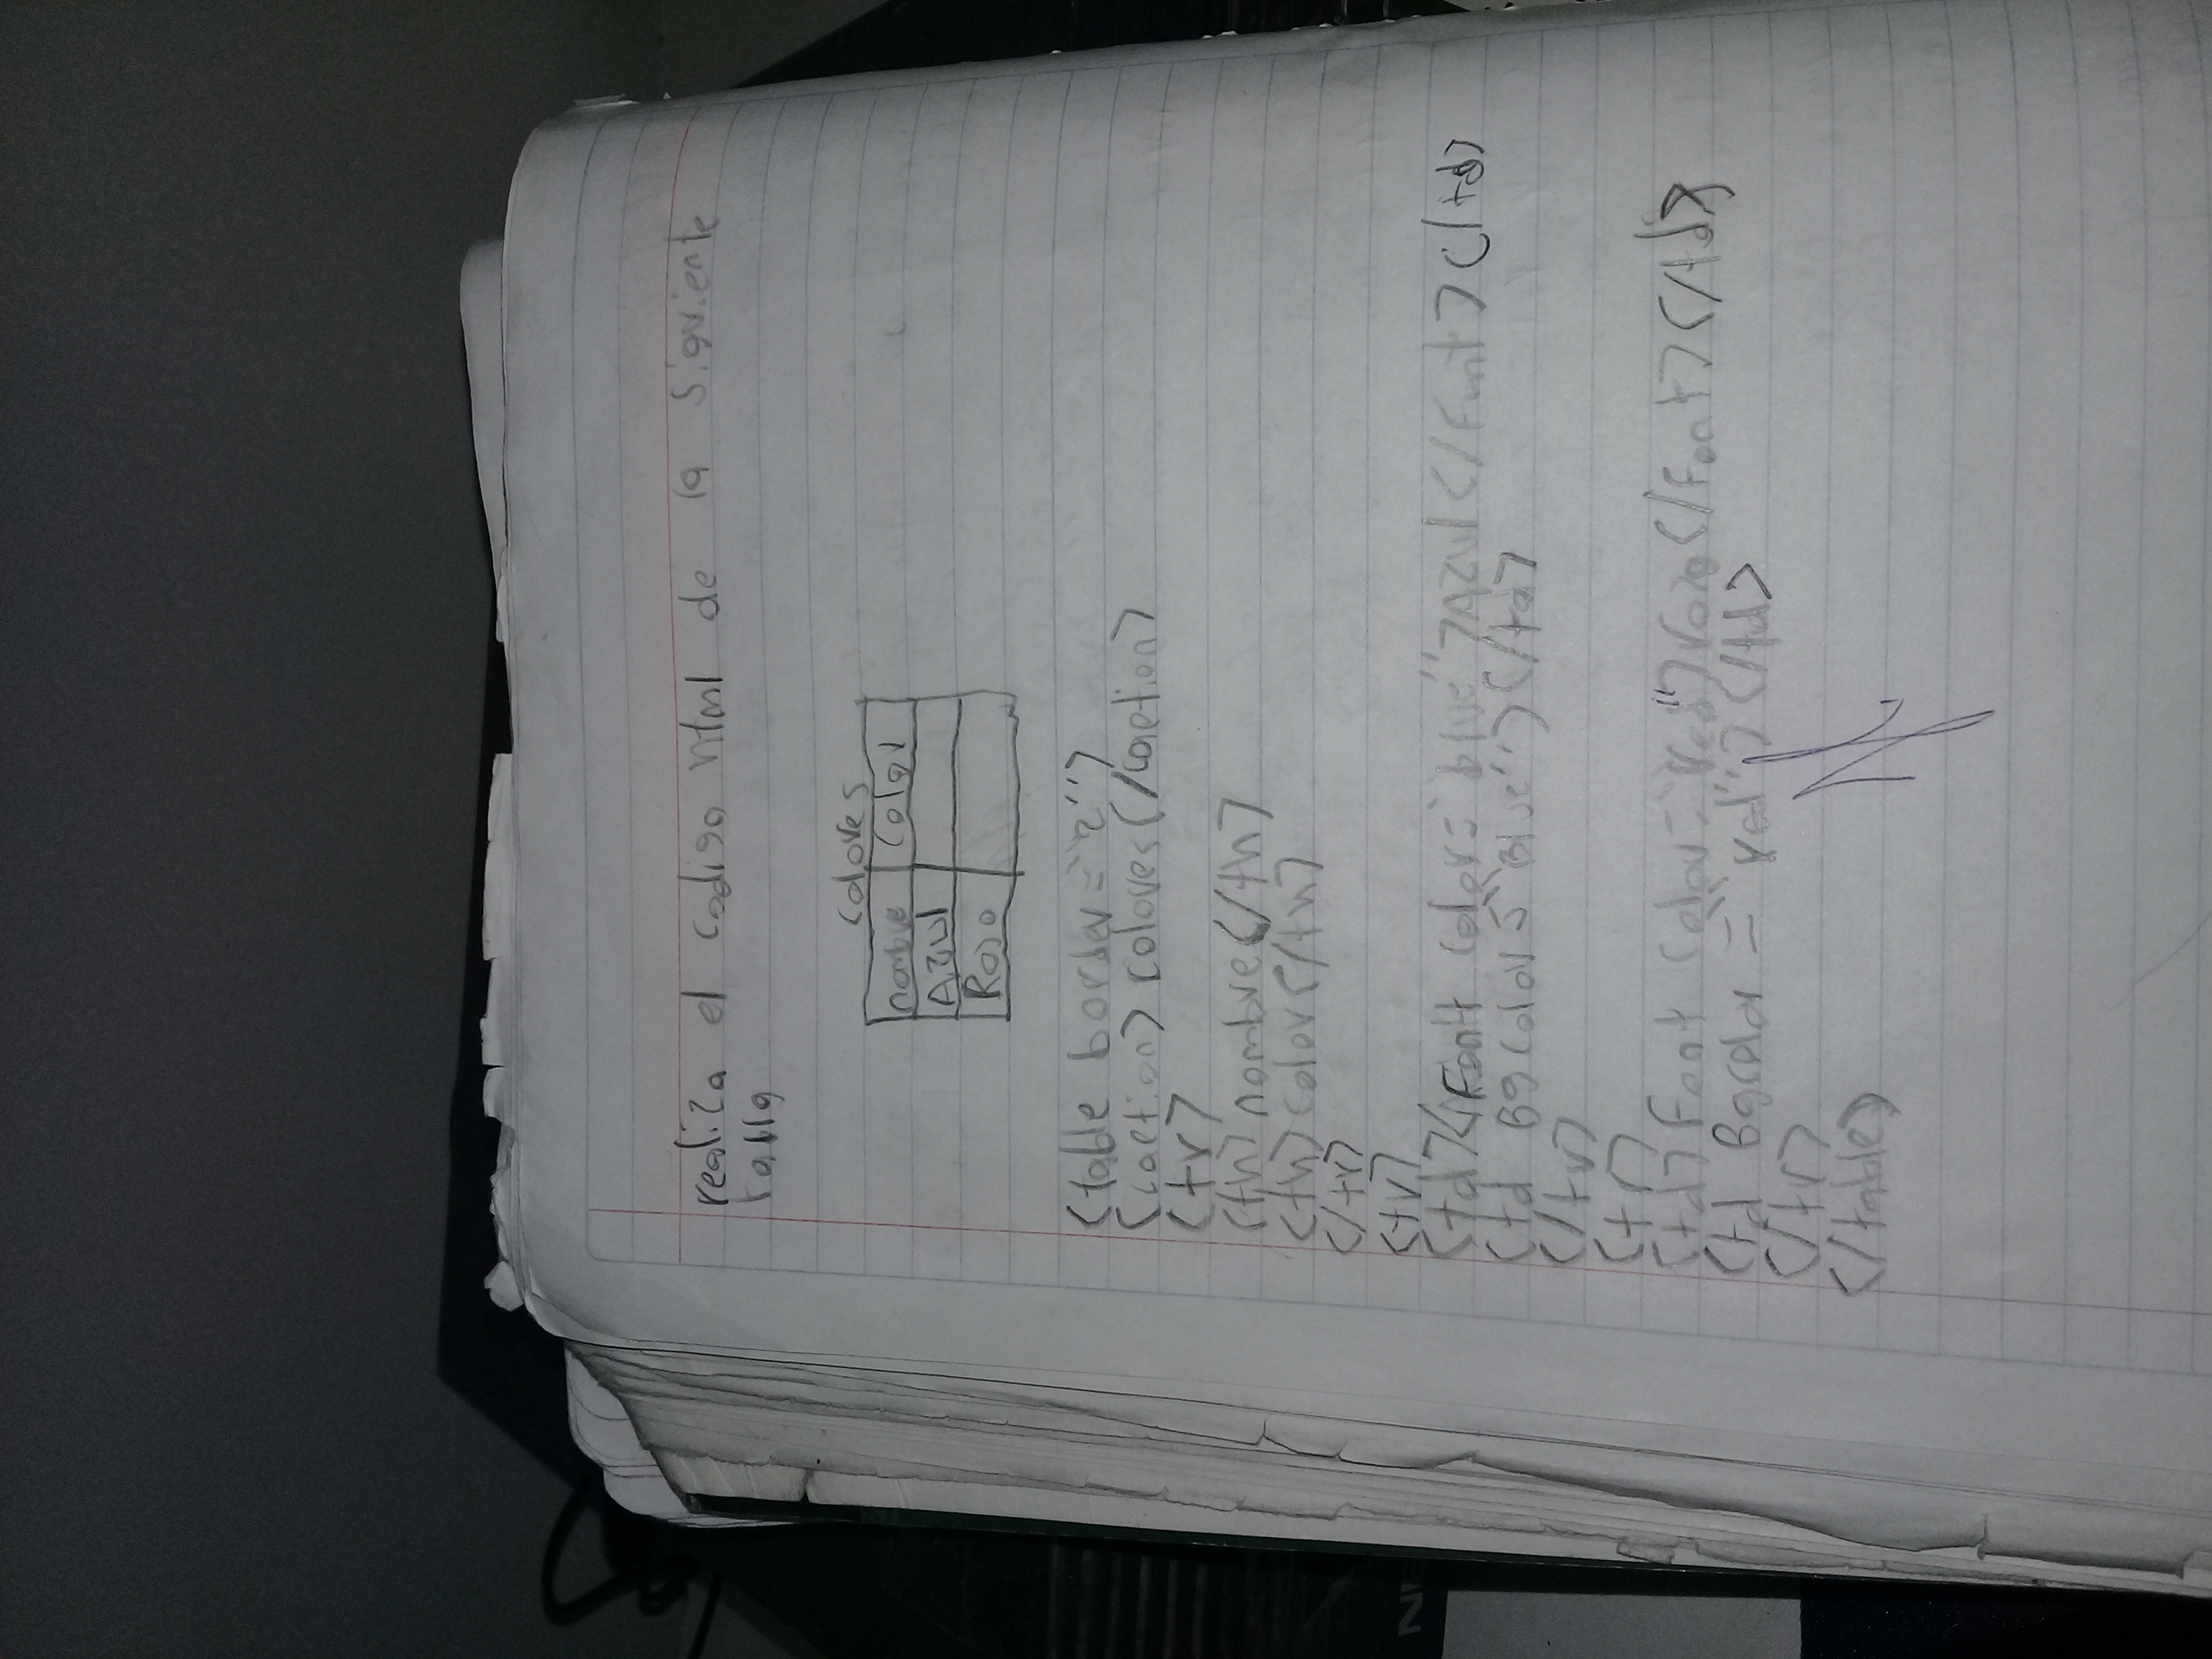 realiza el codigo html de la siguiente
tabla
colores
nombre color
Azul
Rojo
<table border="2">
<caption> colores</caption>
<tr>
<th>nombre</th>
<th>color</th>
</tr>
<tr>
<td><Font color="blue">Azul</Font></td>
<td BgColor="Blue"></td>
</tr>
<tr>
<td>Font color="red">rojo</Font></td>
<td Bgcolor="red"></td>
</tr>
</table>